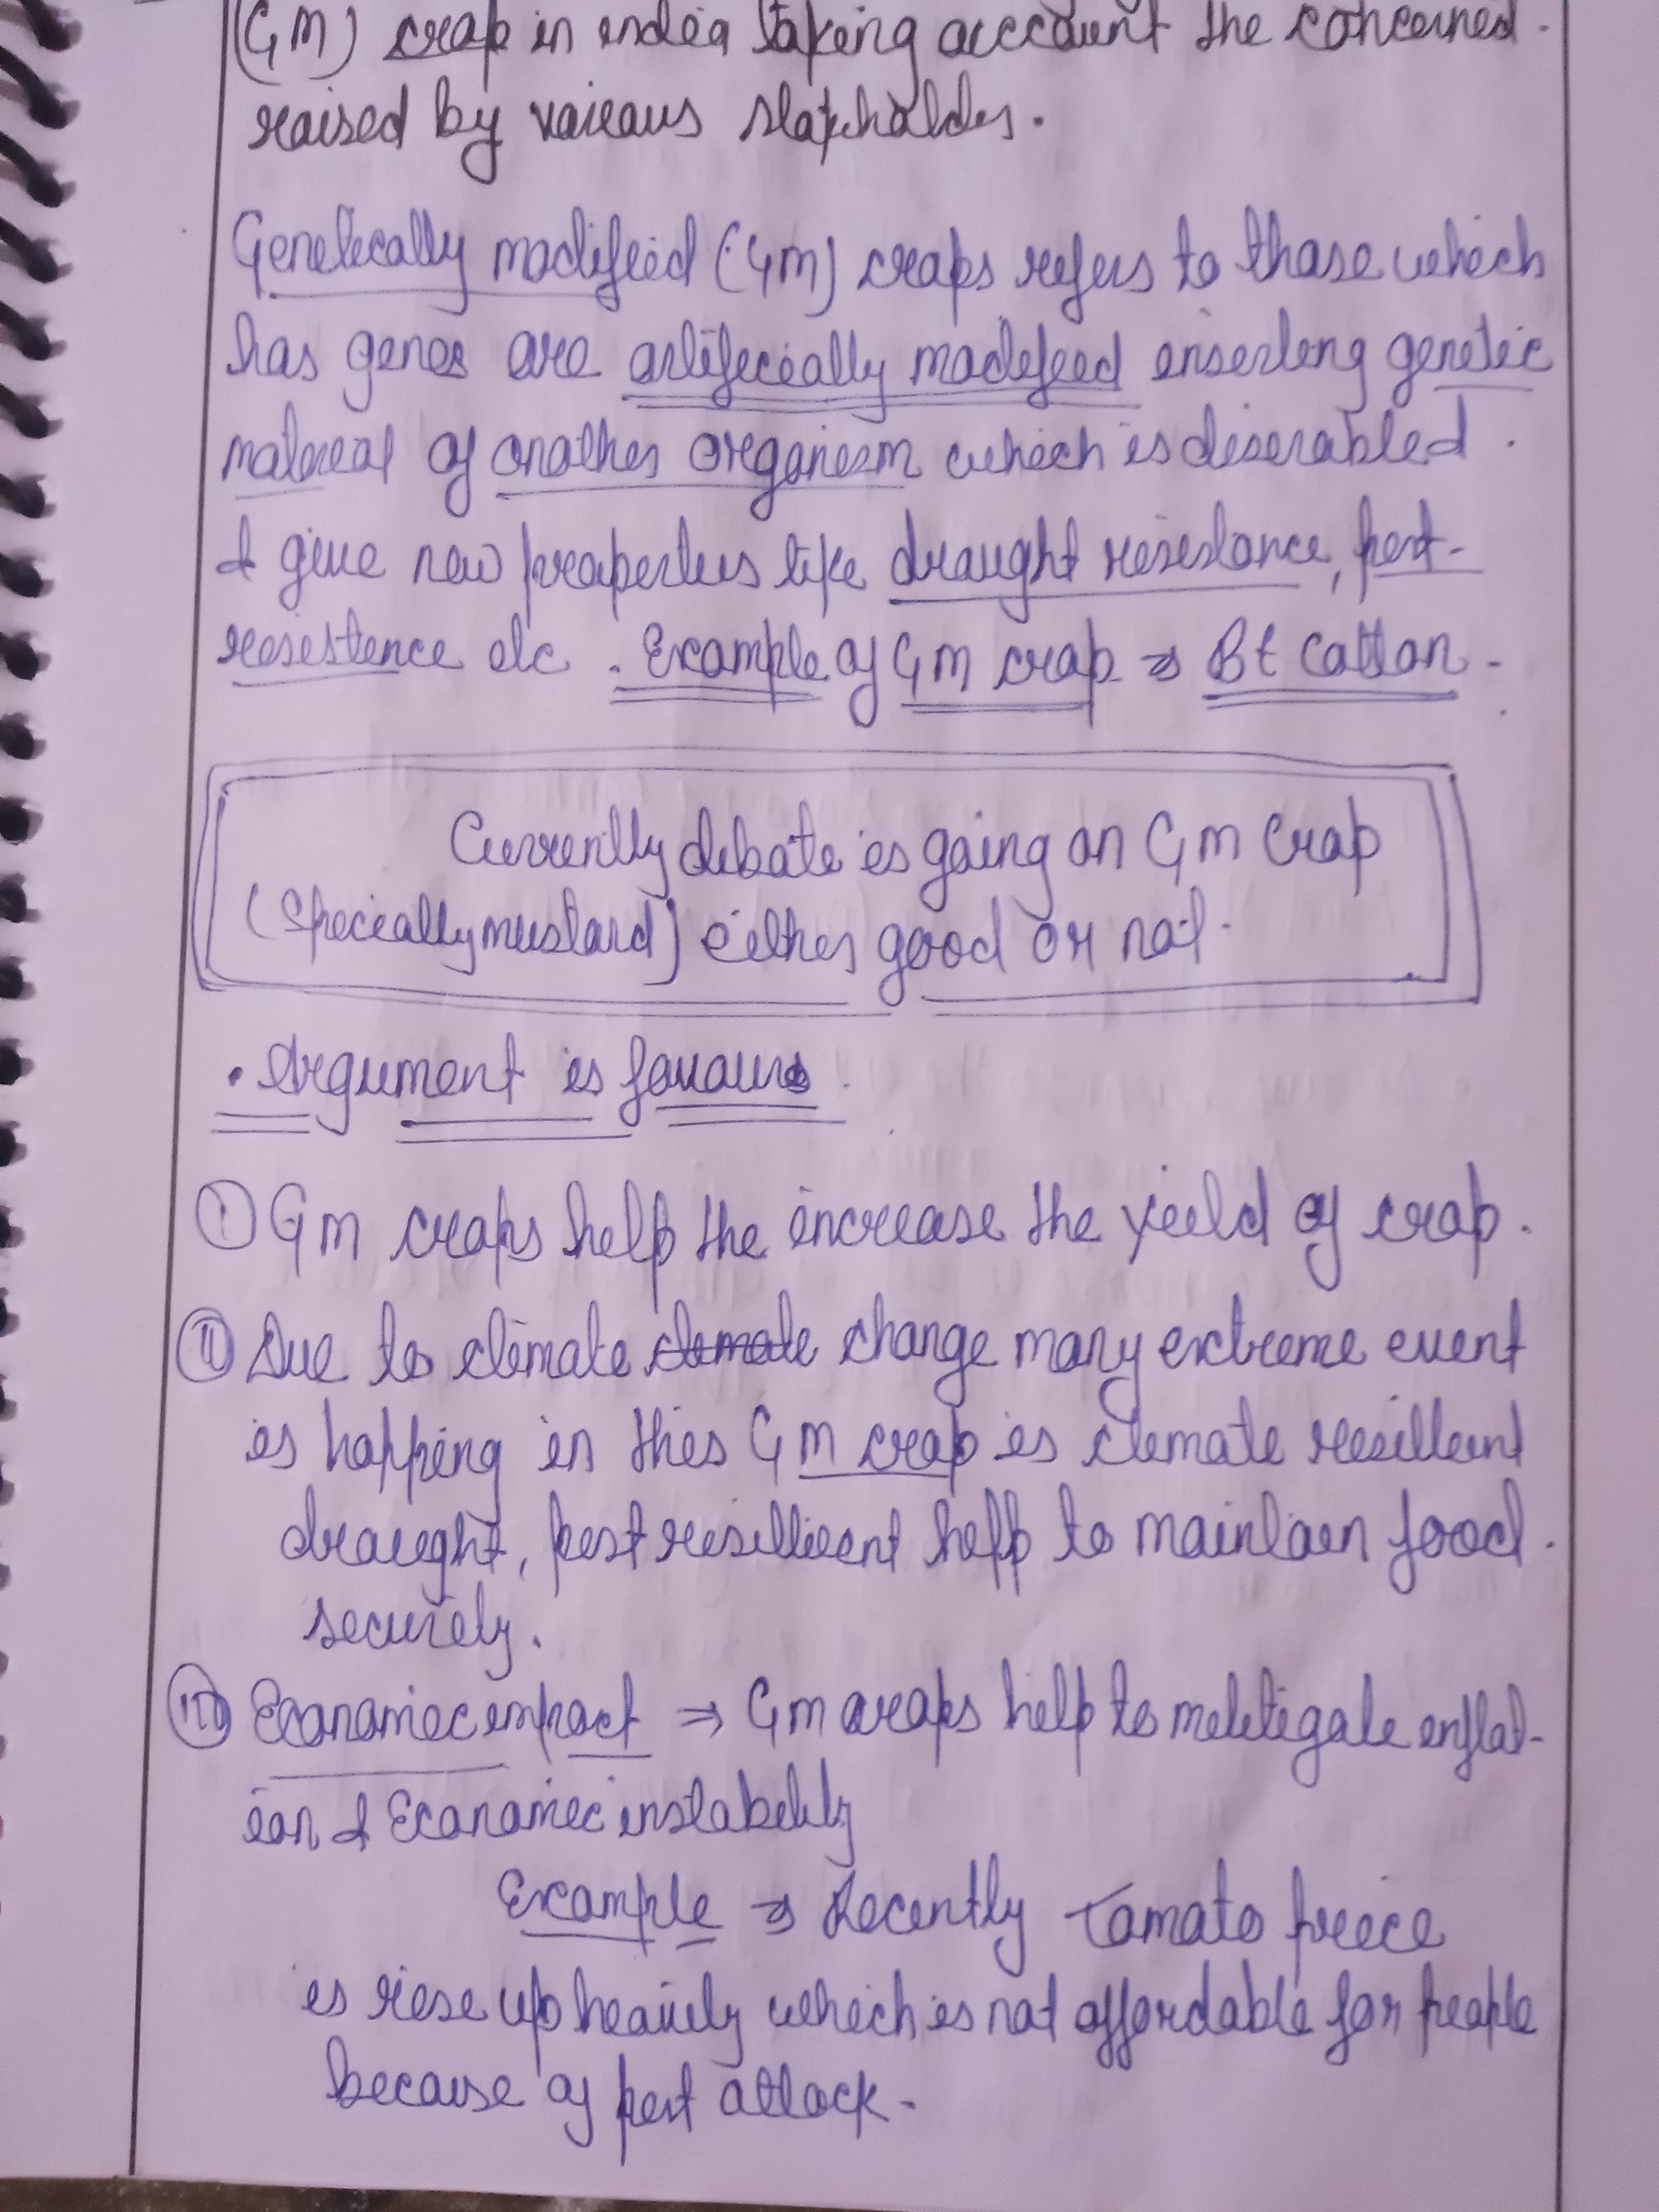 (GM) crop in india taking account the concerned
raised by various stakeholders.
Genetically modified (GM) crops refers to those which
has genes are artificially modified inserting genetic
material of another organism which is diserabled.
& give new properties like draught resistance, pest-
resistence etc. Example of GM crop ⇒ Bt Cotton.
Currently debate is going on GM Crop
(Specially mustard) either good or not.
• Argument is favours
① GM crops help the increase the yield of crop.
Ⅱ Due to climate climate change many extreme event
is happing in this GM crop is climate resillent
draught, pest resillient help to maintain food.
security.
III Economic impact ⇒ GM crops help to melitigate inflat-
ion & Economic instability
Example ⇒ Recently Tomato priece
is rise up heavily which is not affordable for people
because of pest attack.